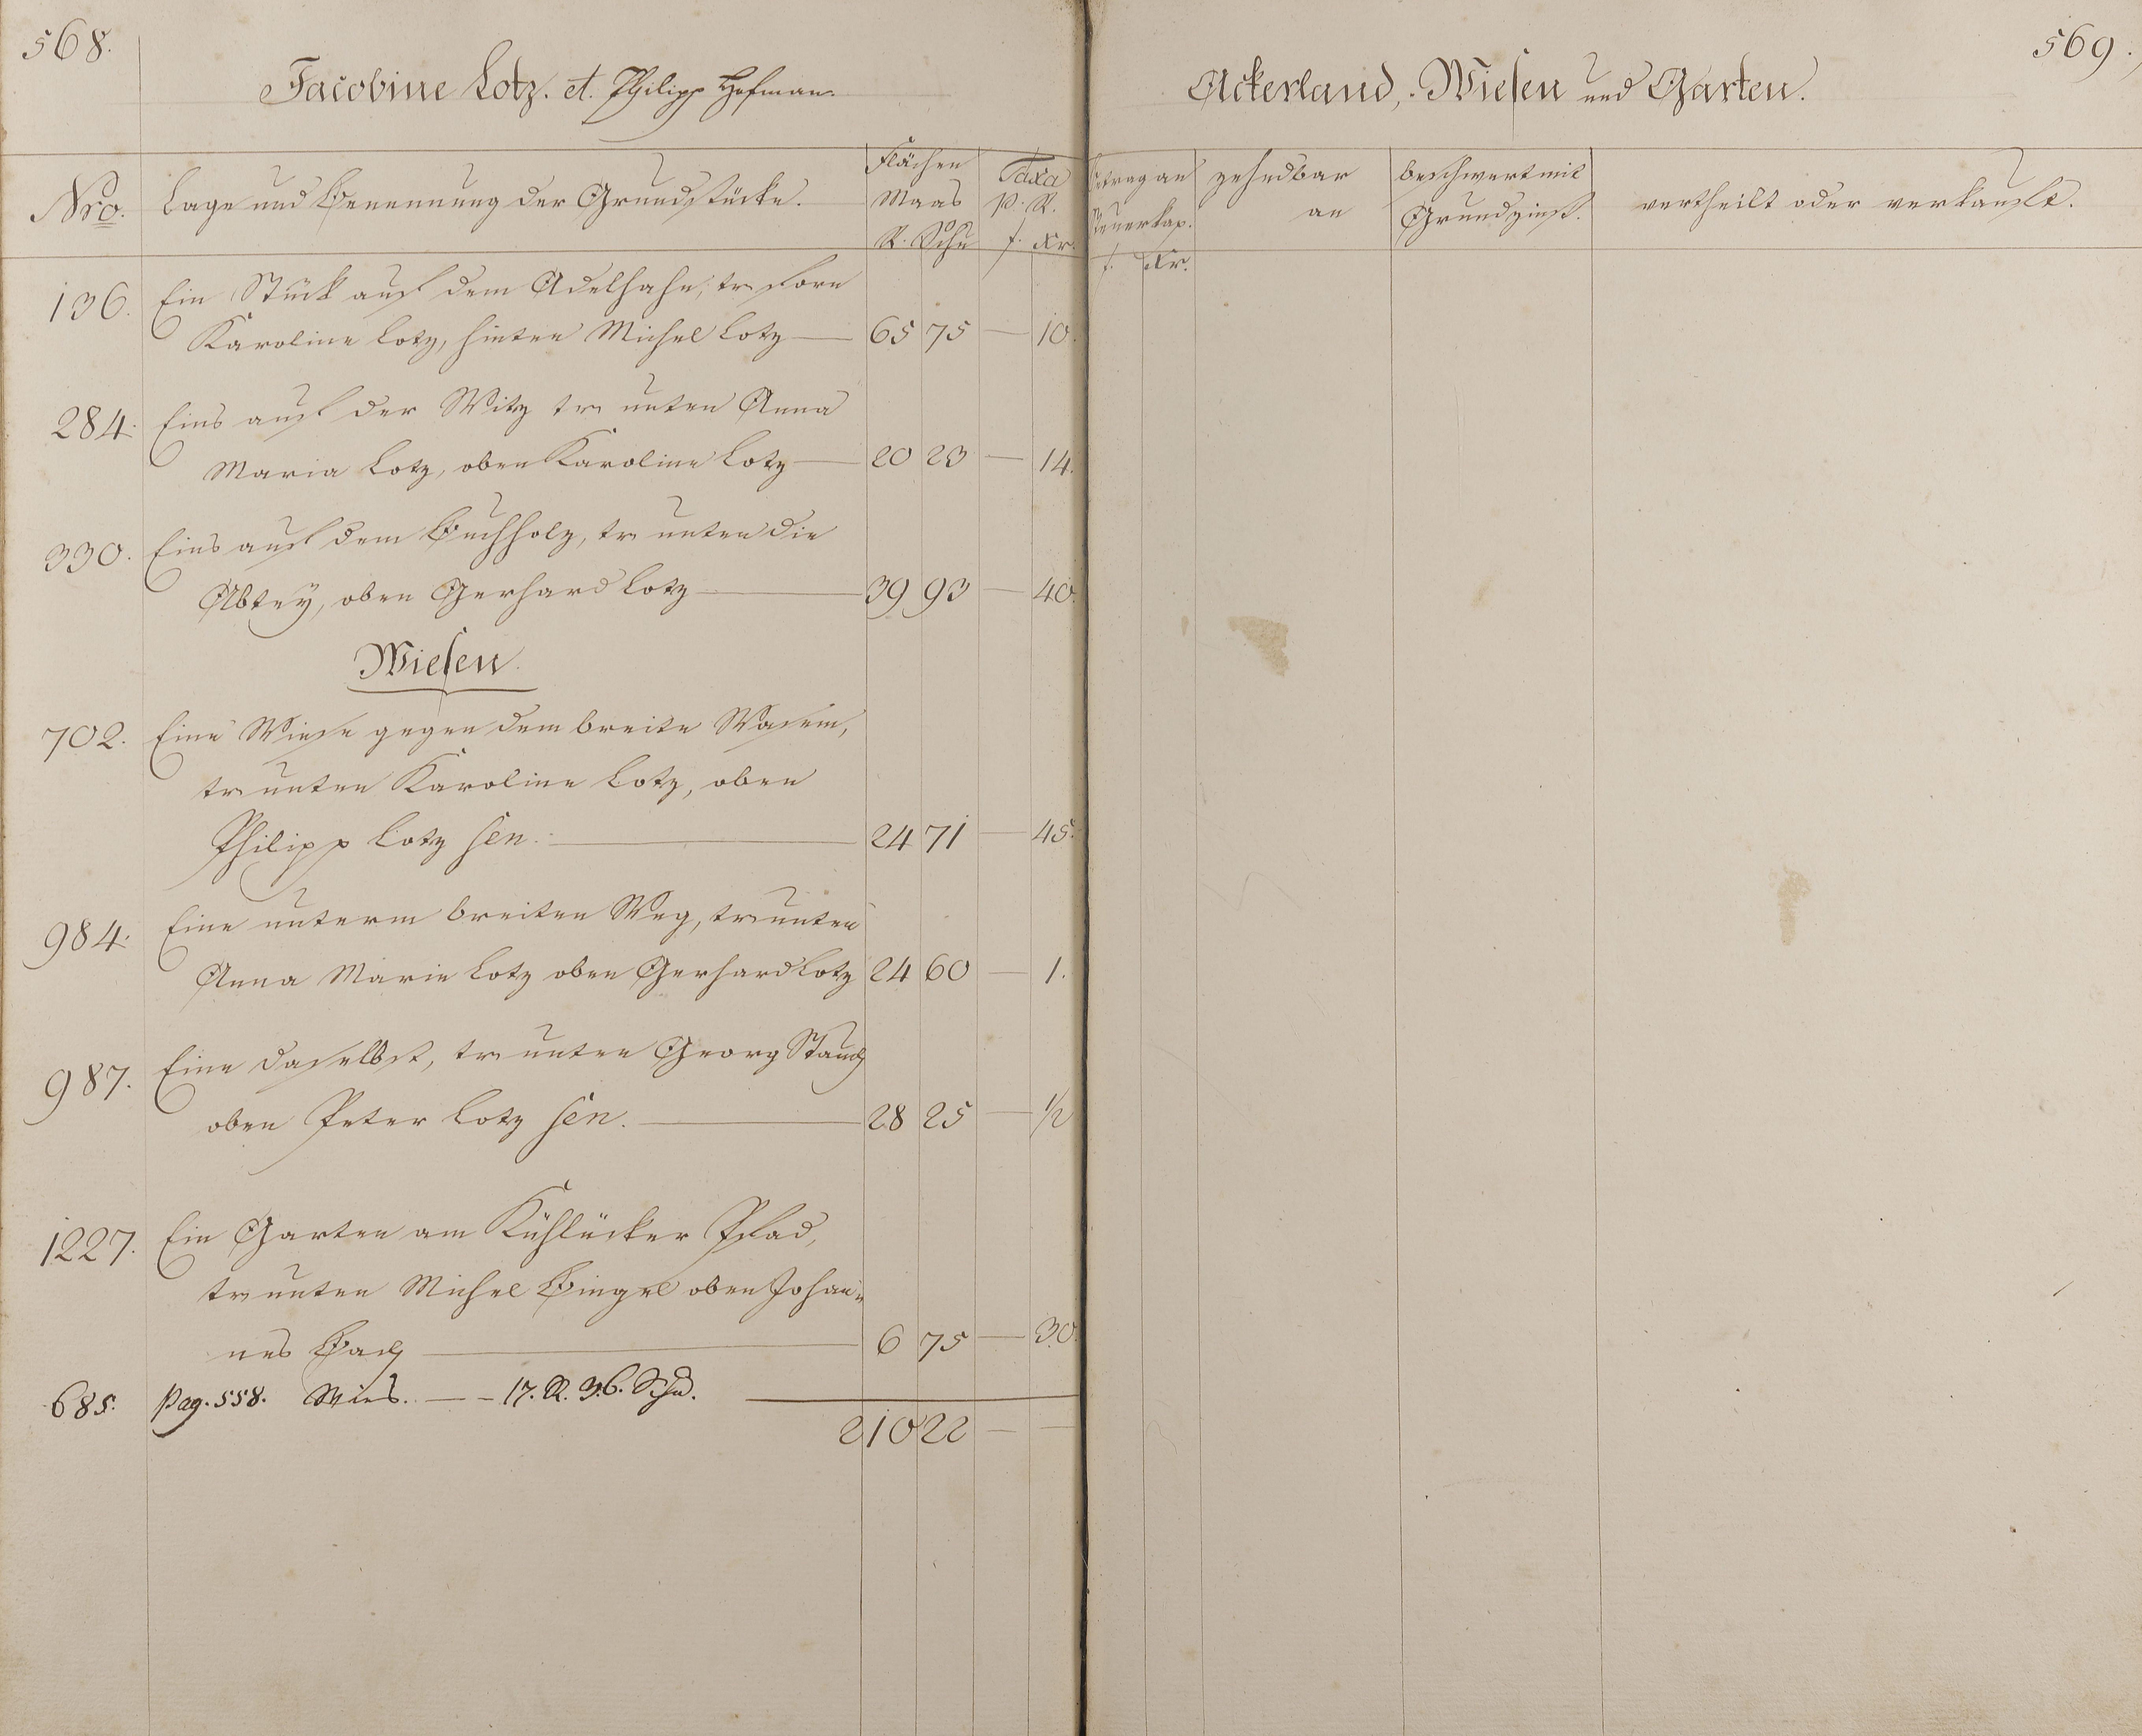 568.
Jacobine Lotz. et. Philipp Hofman.
Nro.
Lage und Benennung der Grundstücke.
Flächen
Maas
R. Schu
Taxa
p. R.
f. Xr.
136. Ein Stück auf dem Adelhahn, tr forn
Karoline Lotz, hinten Michel Lotz — 65 75 — 10.
284. Eins auf der Witz tr unten Anna
Maria Lotz, oben Karoline Lotz — 20 23 — 14.
330. Eins auf dem Buchholz, tr unten die
Abtey, oben Gerhard Lotz — 39 93 — 40.
Wiesen.
702. Eine Wiese gegen dem breite Wasem,
tr unten Karoline Lotz, oben
Philipp Lotz sen. — 24 71 — 45.
984. Eine unterm breiten Weg, tr unten
Anna Marie Lotz oben Gerhard Lotz 24 60 — 1.
987. Eine daselbst, tr unten Georg Stauch
oben Peter Lotz sen. — 28 25 — 1/2
1227. Ein Garten am Kühlücker Pfad,
tr unten Michel Bingel oben Johan¬
nes Bach — 6 75 — 30.
685. pag. 558. Wies. — 17. R. 36. Schu.
210 22 — —
569.
Ackerland, Wiesen und Garten.
Betrag an
Steuerkap.
f. Xr.
zehndbar
an
beschwert mit
Grundzinß.
vertheilt oder verkauft.